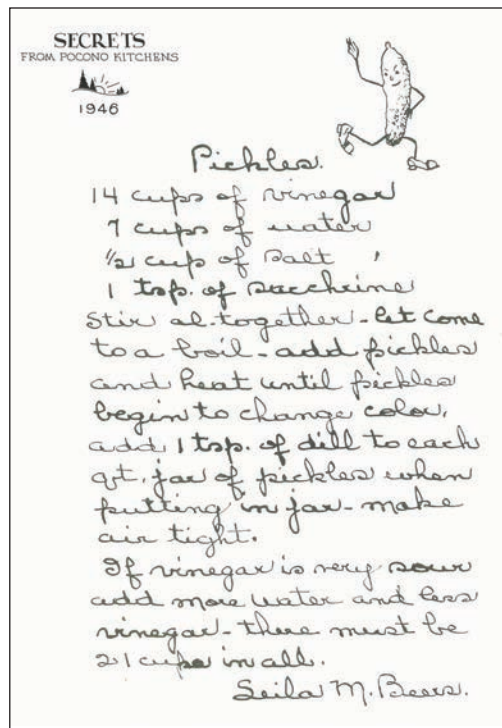 SECRETS
FROM POCONO KITCHENS
1946
Pickles.
14 cups of vinegar
7 cups of water
1/2 cup of salt
1 tsp. of sacchrine
Stir al-together - let come
to a boil - add pickles
and heat until pickles
begin to change color,
add 1 tsp. of dill to each
qt. jar of pickles when
putting in jar - make
air tight.
If vinegar is very sour
add more water and less
vinegar - there must be
21 cups in all.
Leila M. Beers.